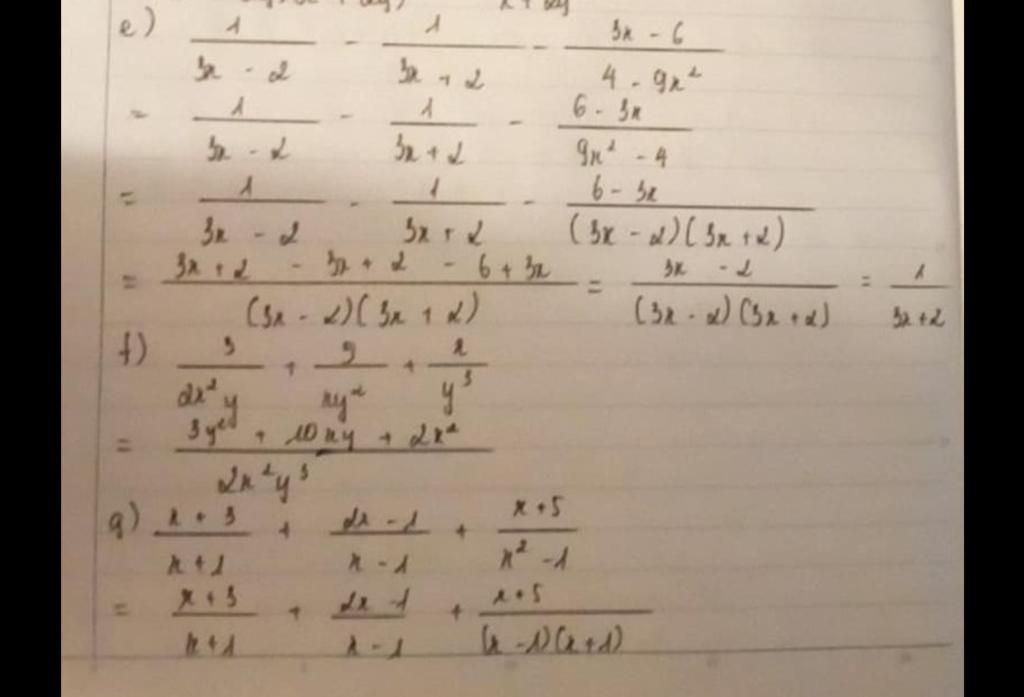 e) 1/(3x - 2) - 1/(3x + 2) - (3x - 6)/(4 - 9x²)
= 1/(3x - 2) - 1/(3x + 2) - (6 - 3x)/(9x² - 4)
= 1/(3x - 2) - 1/(3x + 2) - (6 - 3x)/((3x - 2)(3x + 2))
= (3x + 2 - 3x + 2 - 6 + 3x)/((3x - 2)(3x + 2)) = (3x - 2)/((3x - 2)(3x + 2)) = 1/(3x + 2)
f) 3/(2x²y) + 5/(xy²) + x/y³
= (3y² + 10xy + 2x²)/(2x²y³)
g) (x + 3)/(x + 1) + (2x - 1)/(x - 1) + (x + 5)/(x² - 1)
= (x + 3)/(x + 1) + (2x - 1)/(x - 1) + (x + 5)/((x - 1)(x + 1))